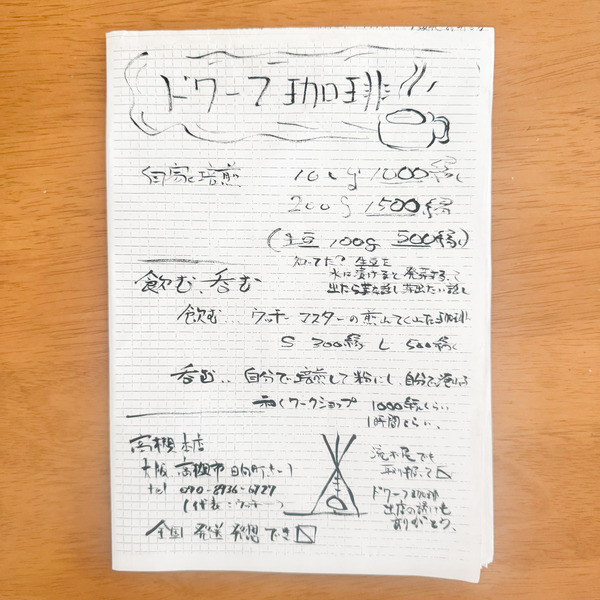 ドワーフ珈琲
自家焙煎 100g 1000縁
200g 1500縁
(生豆 100g 500縁)
知ってた? 生豆を
水に漬けると発芽するって
出たら芽な話し 芽出たい話し
飲む、呑む
飲む… ウッチーマスターの煎れてくれた珈琲
S 300縁 L 500縁
呑む.. 自分で焙煎して粉にし、自分で淹れる
ワークショップ 1000縁くらい
1時間くらい、
高槻本店
大阪 高槻市
tel 090-8936-6727
(代表:ウッチー)
全国 発送 できる
ドワーフ珈琲
出店の誘いも
ありがとう、